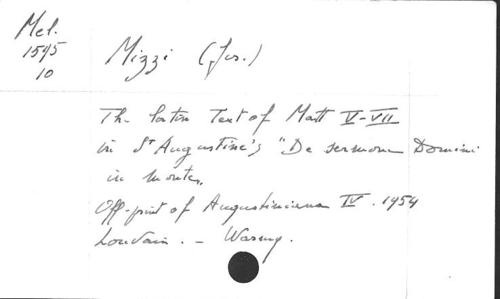 Mel.
1595
10
Mizzi (Jos.)
The Latin Text of Matt V-VII
in St Augustine's "De sermone Domini
in monte.
Off-print of Augustiniana IV. 1954
Louvain. –